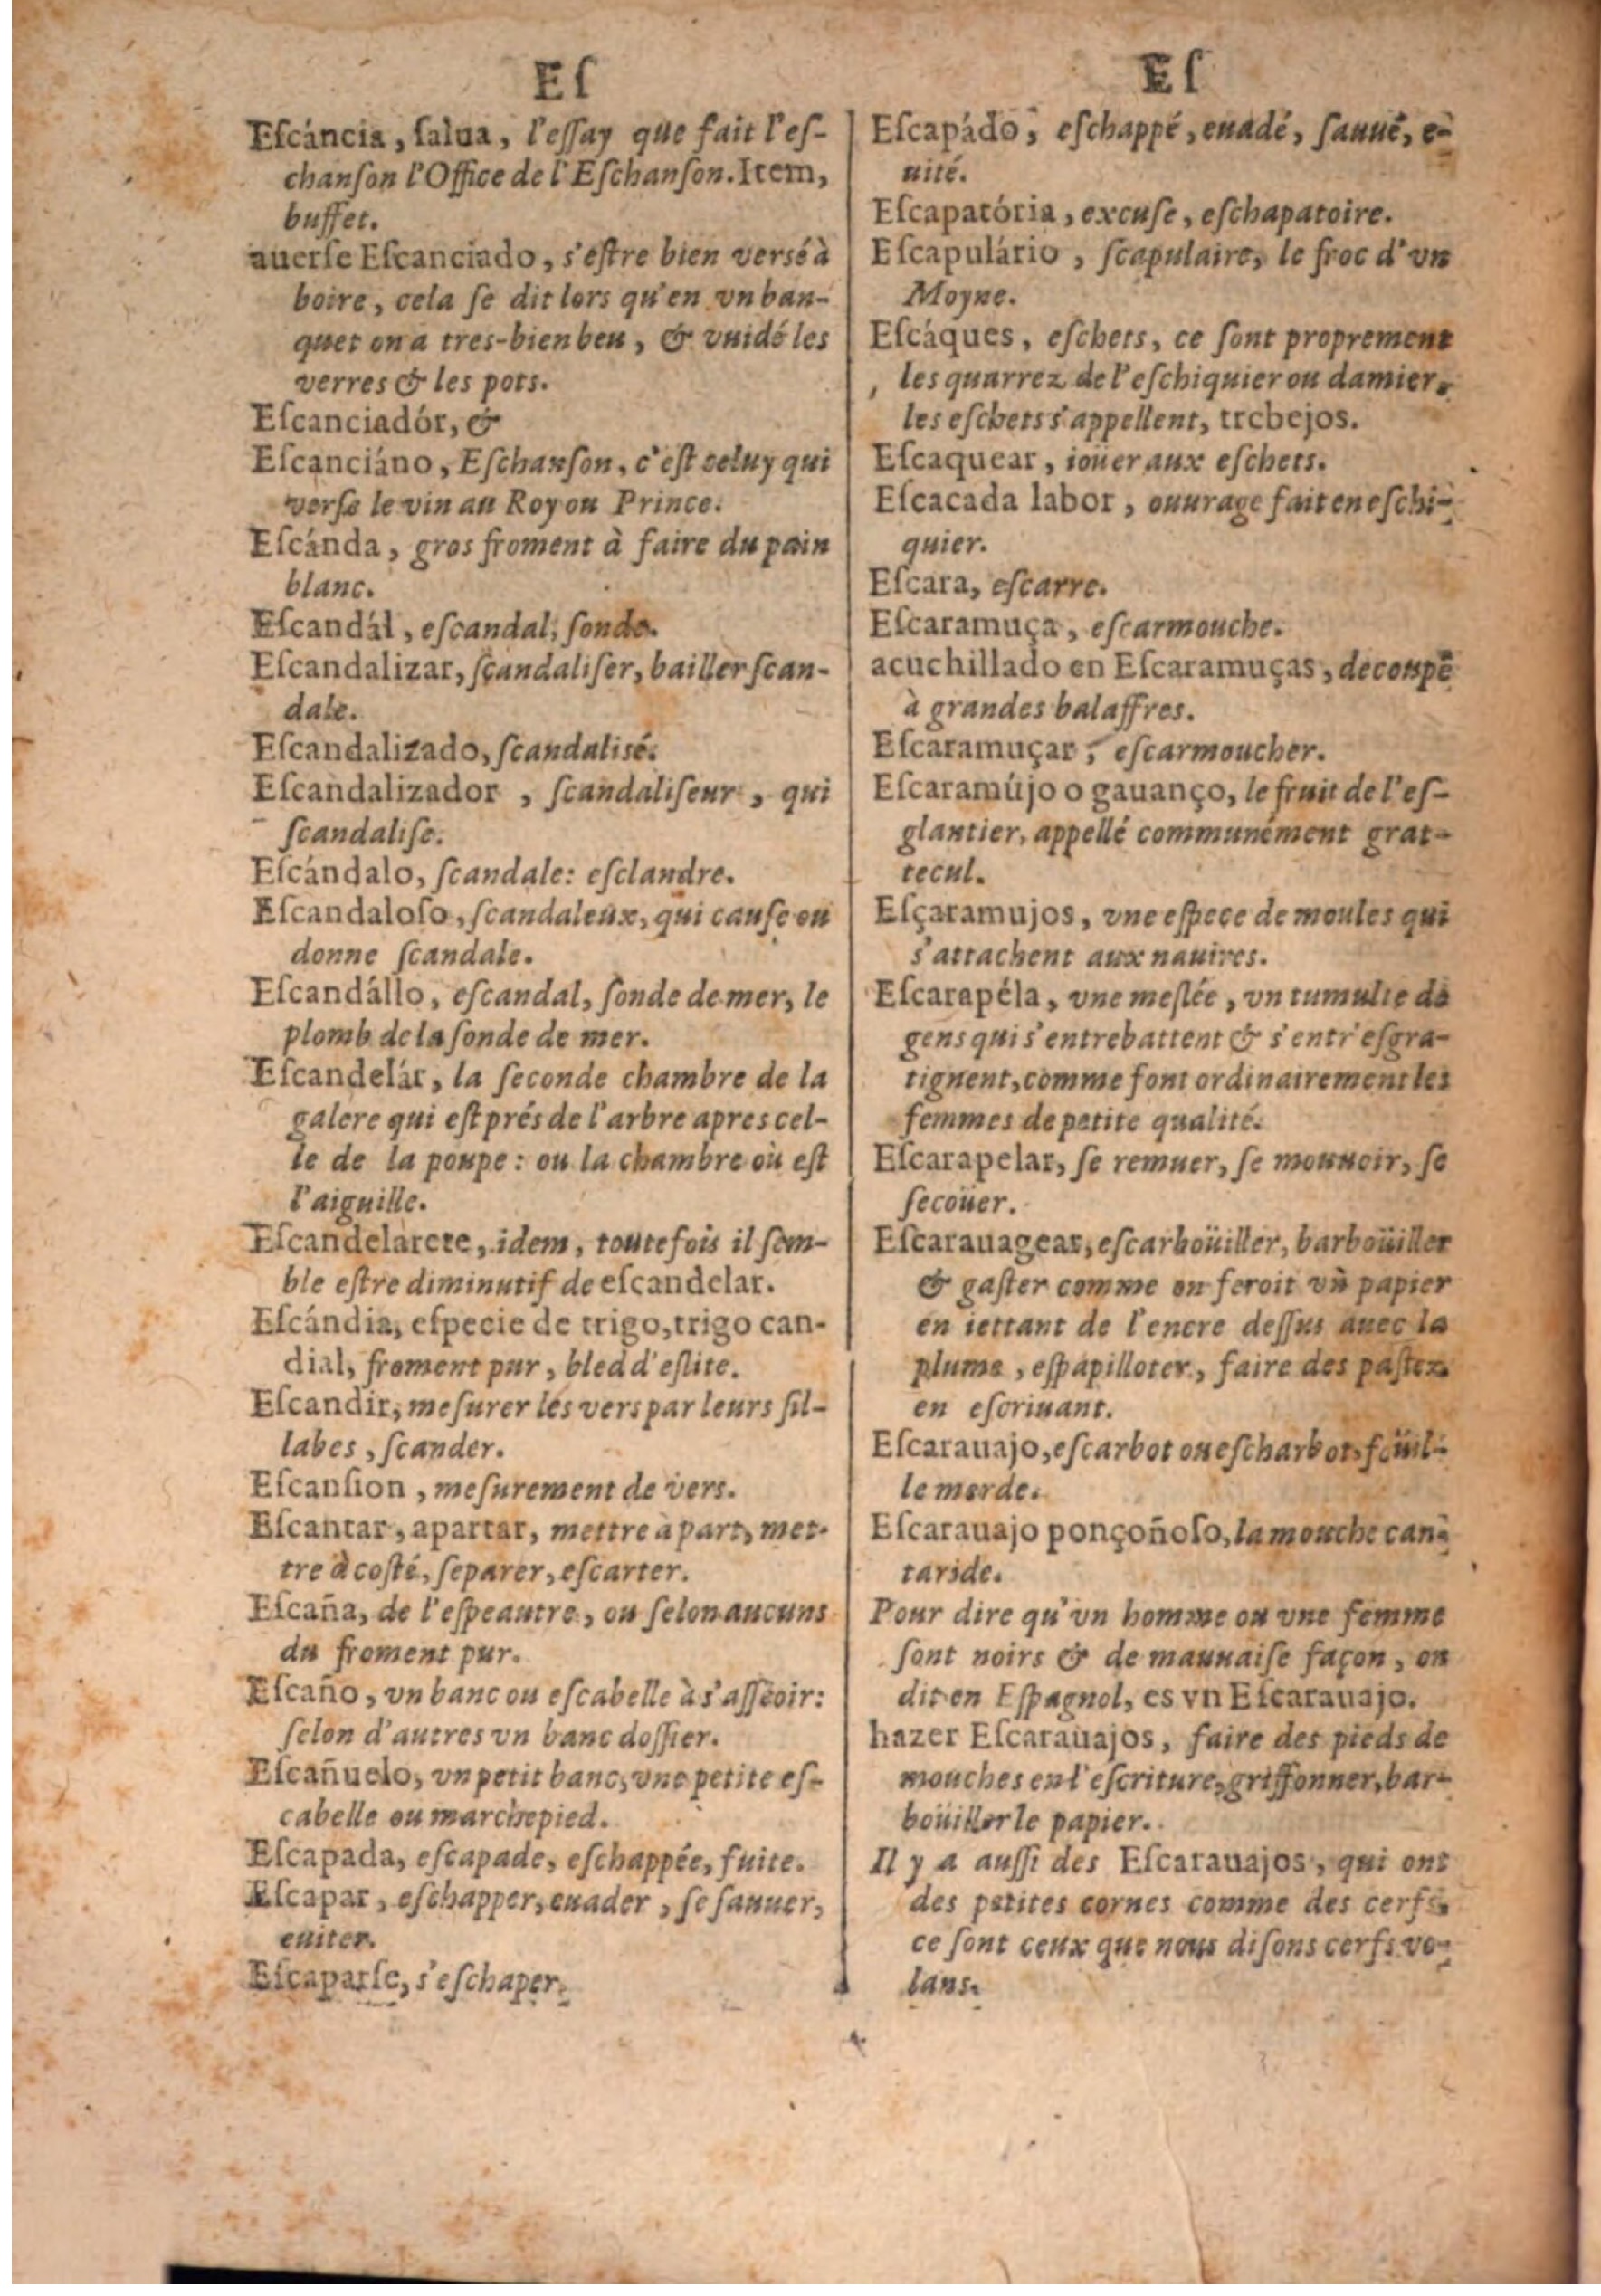 Eſ
Eſcáncia, ſalua, l'eſſay que fait l'eſ-
chanſon l'Office de l'Eſchanſon. Item,
buffet.
auerſe Eſcanciado, s'eſtre bien versé à
boire, cela ſe dit lors qu'en vn ban-
quet on a tres-bien beu, & vuidé les
verres & les pots.
Eſcanciadór, &
Eſcanciáno, Eſchanſon, c'eſt celuy qui
verſe le vin au Roy ou Prince.
Eſcánda, gros froment à faire du pain
blanc.
Eſcandál, eſcandal, ſonde.
Eſcandalizar, ſcandaliſer, bailler ſcan-
dale.
Eſcandalizado, ſcandalisé.
Eſcandalizador, ſcandaliſeur, qui
ſcandaliſe.
Eſcándalo, ſcandale: eſclandre.
Eſcandaloſo, ſcandaleux, qui cauſe ou
donne ſcandale.
Eſcandállo, eſcandal, ſonde de mer, le
plomb de la ſonde de mer.
Eſcandelár, la ſeconde chambre de la
galere qui eſt prés de l'arbre apres cel-
le de la poupe: ou la chambre où eſt
l'aiguille.
Eſcandelarete, idem, toutefois il ſem-
ble eſtre diminutif de eſcandelar.
Eſcándia, eſpecie de trigo, trigo can-
dial, froment pur, bled d'eſlite.
Eſcandir, meſurer les vers par leurs ſil-
labes, ſcander.
Eſcanſion, meſurement de vers.
Eſcantar, apartar, mettre à part, met-
tre à coſté, ſeparer, eſcarter.
Eſcaña, de l'eſpeautre, ou ſelon aucuns
du froment pur.
Eſcaño, vn banc ou eſcabelle à s'aſſeoir:
ſelon d'autres vn banc doſſier.
Eſcañuelo, vn petit banc, vne petite eſ-
cabelle ou marchepied.
Eſcapada, eſcapade, eſchappée, fuite.
Eſcapar, eſchapper, euader, ſe ſauuer,
euiter.
Eſcaparſe, s'eſchaper.
Eſ
Eſcapádo, eſchappé, euadé, ſauué, e-
uité.
Eſcapatória, excuſe, eſchapatoire.
Eſcapulário, ſcapulaire, le froc d'vn
Moyne.
Eſcáques, eſchets, ce ſont proprement
les quarrez de l'eſchiquier ou damier,
les eſchets s'appellent, trebejos.
Eſcaquear, ioüer aux eſchets.
Eſcacada labor, ouurage fait en eſchi-
quier.
Eſcara, eſcarre.
Eſcaramuça, eſcarmouche.
acuchillado en Eſcaramuças, decoupé
à grandes balaffres.
Eſcaramuçar, eſcarmoucher.
Eſcaramújo o gauanço, le fruit de l'eſ-
glantier, appellé communément grat-
tecul.
Eſçaramujos, vne eſpece de moules qui
s'attachent aux nauires.
Eſcarapéla, vne meſlée, vn tumulte de
gens qui s'entrebattent & s'entr'eſgra-
tignent, comme font ordinairement les
femmes de petite qualité.
Eſcarapelar, ſe remuer, ſe mouuoir, ſe
ſecoüer.
Eſcarauagear, eſcarboüiller, barboüiller
& gaſter comme on feroit vn papier
en iettant de l'encre deſſus auec la
plume, eſpapilloter, faire des paſtez
en eſcriuant.
Eſcarauajo, eſcarbot ou eſcharbot, foüil-
le merde.
Eſcarauajo ponçoñoſo, la mouche can-
taride.
Pour dire qu'vn homme ou vne femme
ſont noirs & de mauuaiſe façon, on
dit en Eſpagnol, es vn Eſcarauajo.
hazer Eſcarauajos, faire des pieds de
mouches en l'eſcriture, griffonner, bar-
boüiller le papier.
Il y a auſſi des Eſcarauajos, qui ont
des petites cornes comme des cerfs,
ce ſont ceux que nous diſons cerfs vo-
lans.